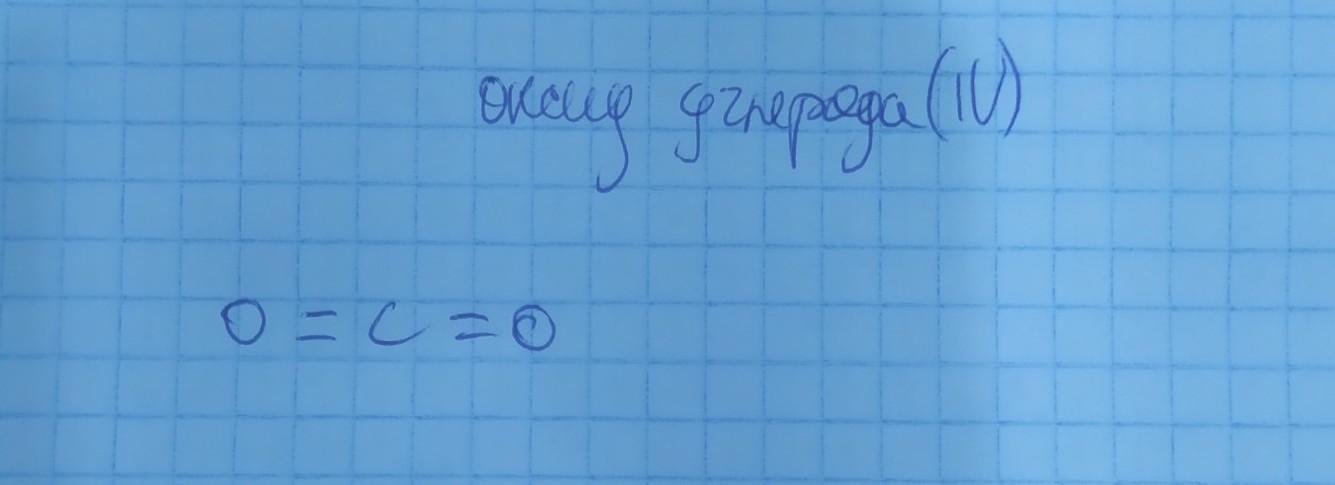 оксид углерода (IV)
O = C = O